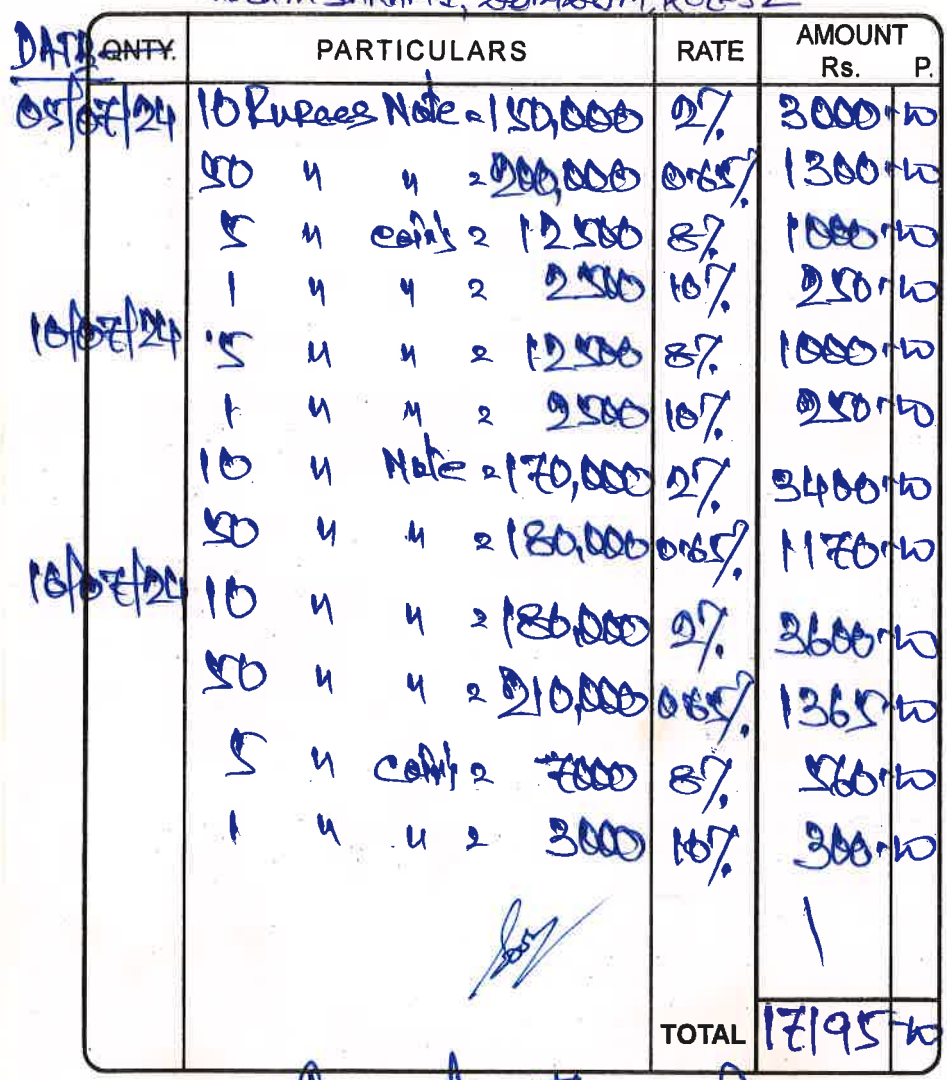 DATE QNTY. PARTICULARS RATE AMOUNT
Rs. P.
05/07/24 10 Rupees Note = 150,000 2% 3000.00
50 " " = 200,000 0.65% 1300.00
5 " coins = 12500 8% 1000.00
1 " " = 2500 10% 250.00
10/07/24 5 " " = 12500 8% 1000.00
1 " " = 2500 10% 250.00
10 " Note = 170,000 2% 3400.00
50 " " = 180,000 0.65% 1170.00
16/07/24 10 " " = 180,000 2% 3600.00
50 " " = 210,000 0.65% 1365.00
5 " coins = 7000 8% 560.00
1 " " = 3000 10% 300.00
TOTAL 17195.00